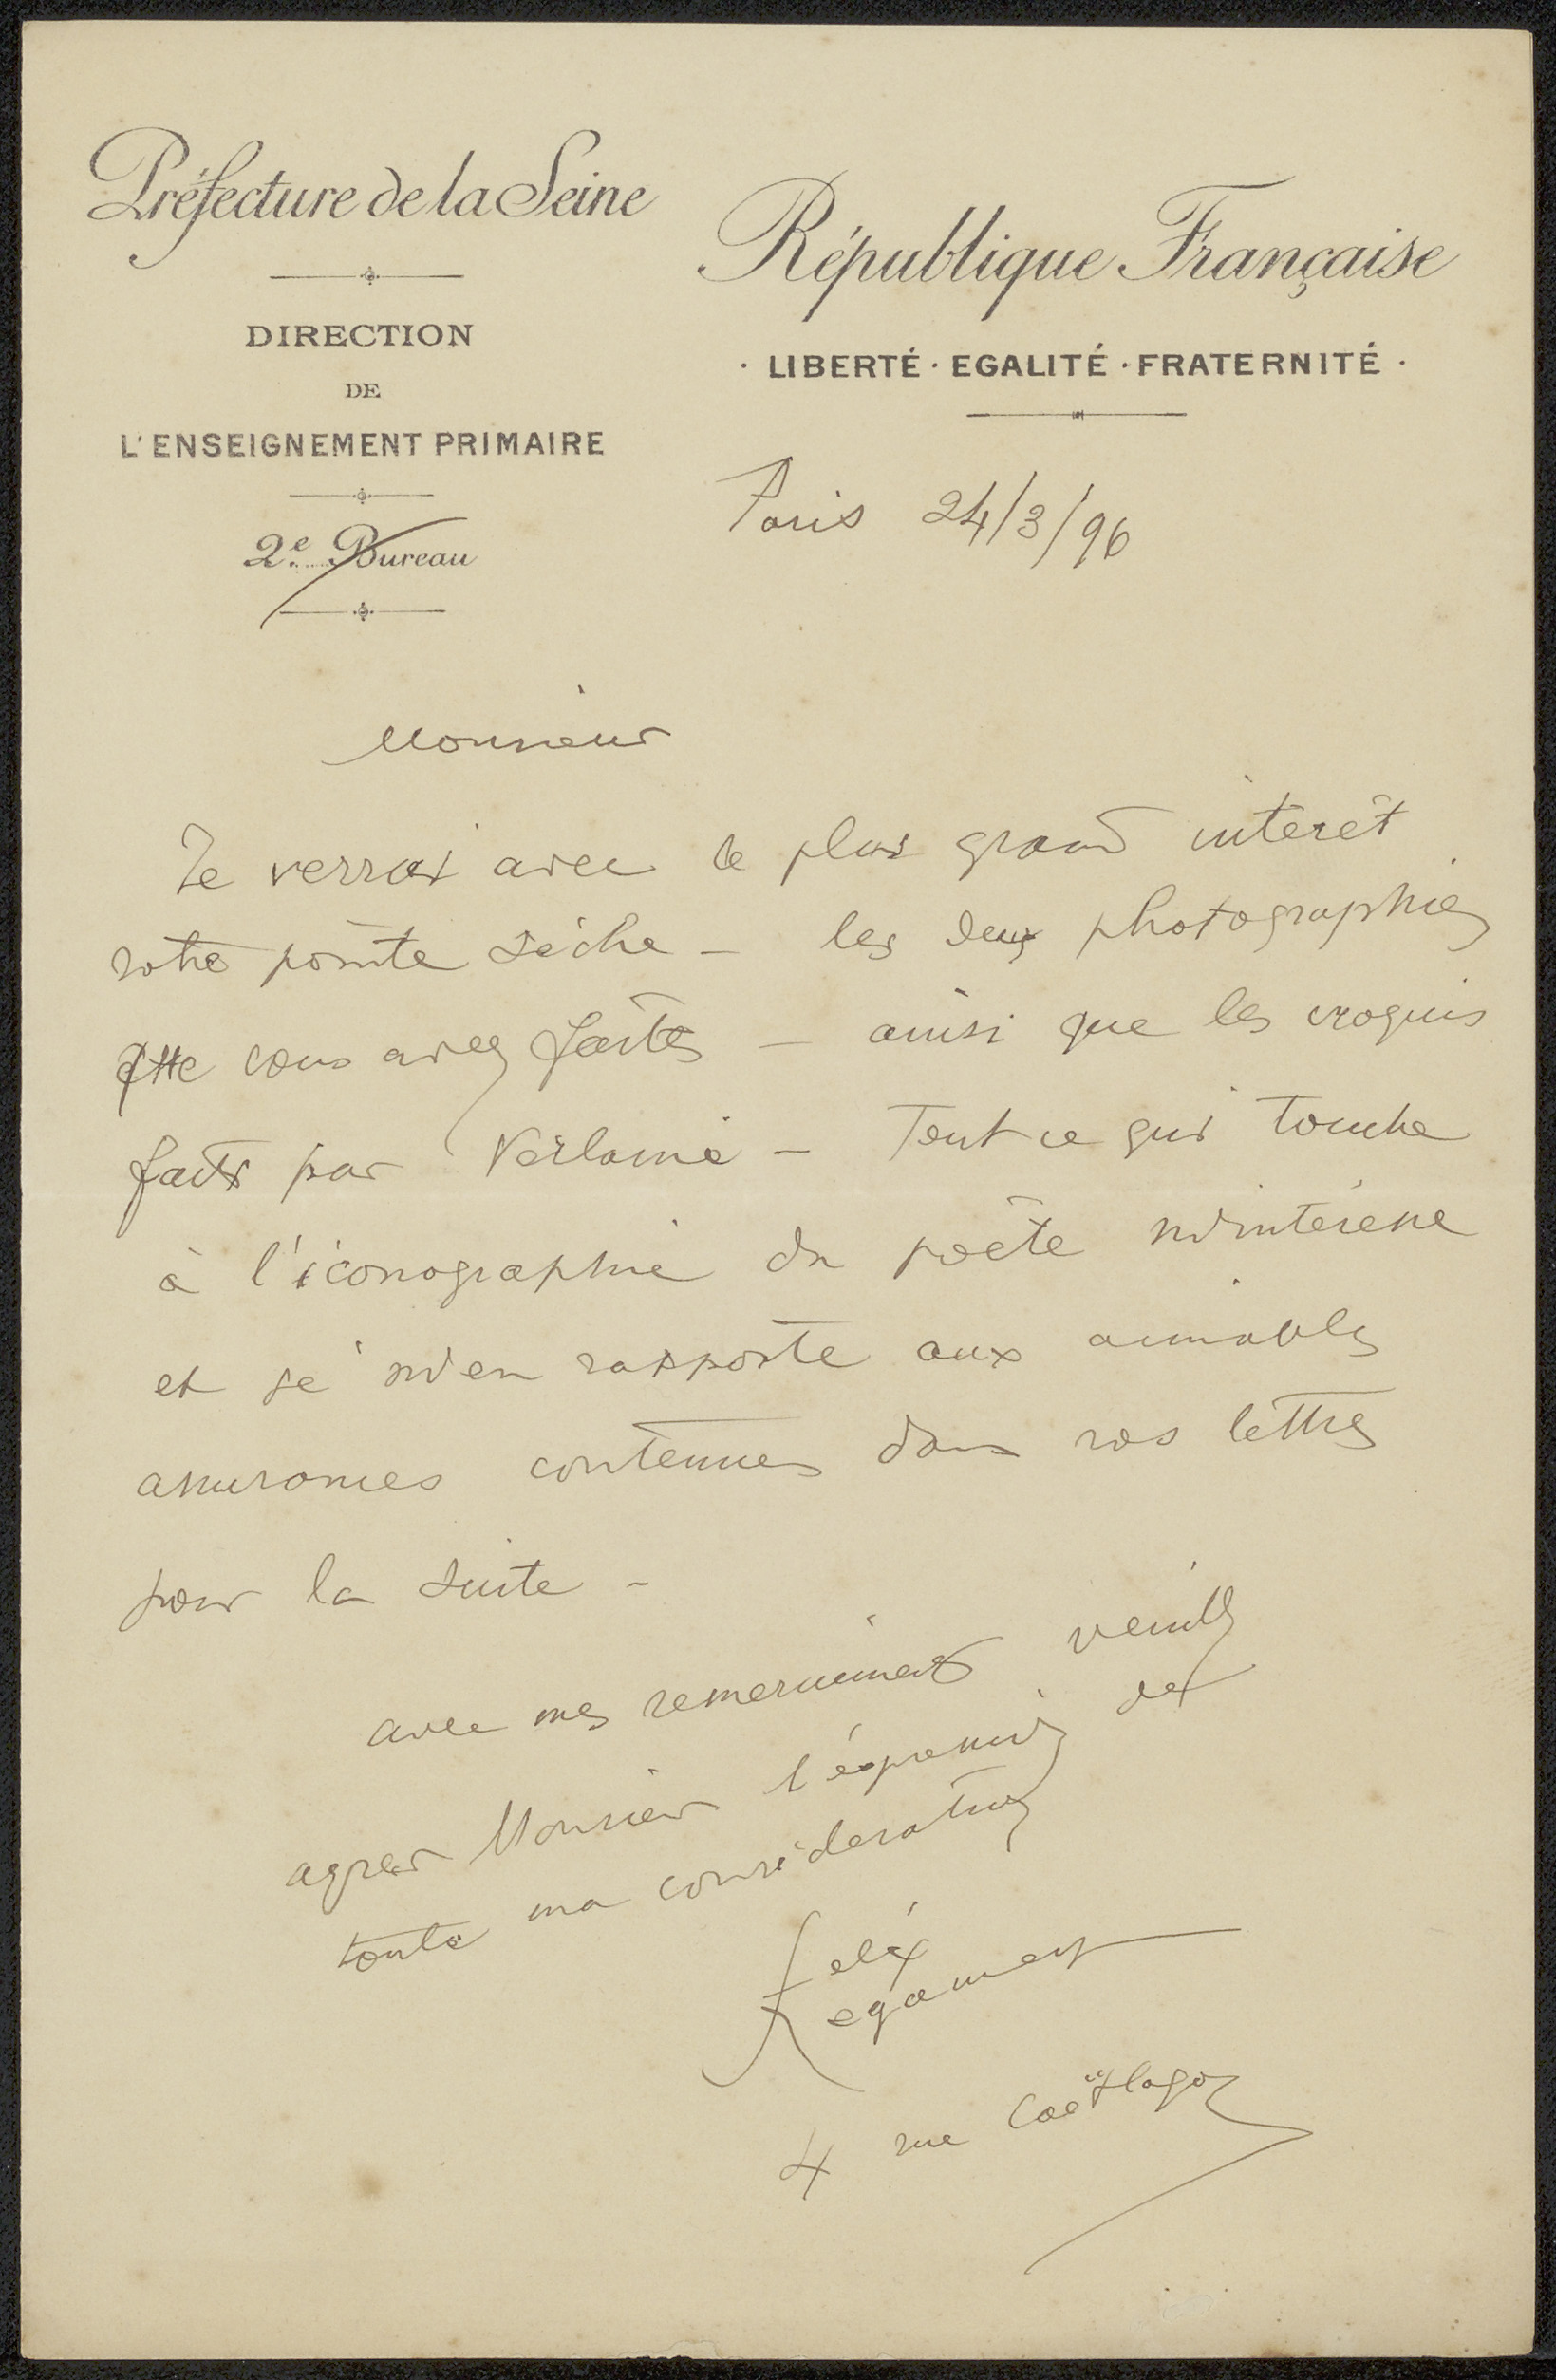 Préfecture de la Seine
DIRECTION
DE
L'ENSEIGNEMENT PRIMAIRE
2e Bureau
République Française
· LIBERTÉ · EGALITÉ · FRATERNITÉ ·
Paris 24/3/96
Monsieur
Je verrai avec le plus grand intérêt
votre pointe sèche – les deux photographies
que vous avez faites – ainsi que les croquis
faits par Verlaine – Tout ce qui touche
à l'iconographie du poète m'intéresse
et je m'en rapporte aux aimables
assurances contenues dans vos lettres
pour la suite –
avec mes remerciements veuillez
agréer Monsieur l'expression de
toute ma considération
Félix
Régamey
4 rue Coëtlogon